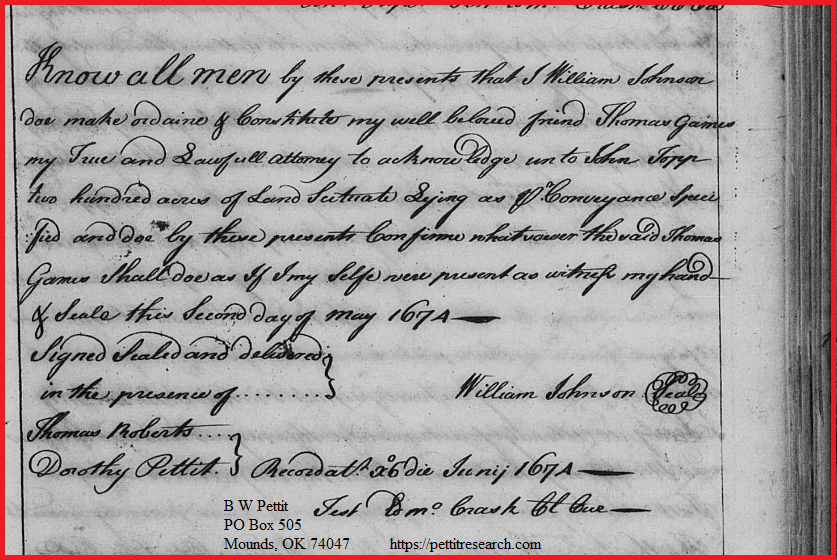 Know all men by these presents that I William Johnson
doe make ordaine & Constitute my well beloved friend Thomas Games
my True and Lawfull attorney to acknowledge unto John Topp
two hundred acres of Land Scituate Lying as p Conveyance Speci
fied and doe by these presents Confirme whatsoever the said Thomas
Games Shall doe as If I my Selfe were present as witness my hand
& Seale this Second day of may 1674
Signed Sealed and delivered
in the presence of ........ William Johnson Seal
Thomas Roberts ...
Dorothy Pettit. Recordat die Junij 1674
Test Edmo Crask Cl Cur
B W Pettit
PO Box 505
Mounds, OK 74047 https://pettitresearch.com